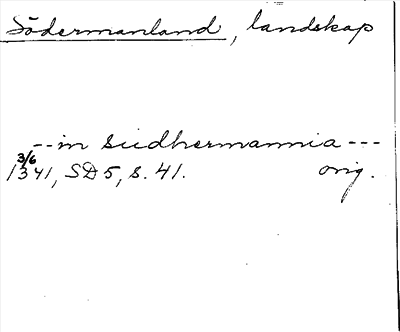 Södermanland, landskap
--in sudhermannia---
3/6
1341, SD 5, s. 41. orig.